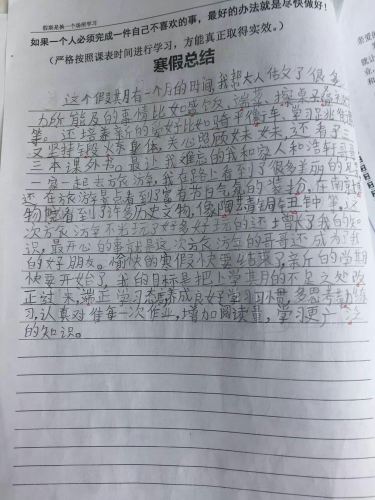 假期是换一个场所学习
如果一个人必须完成一件自己不喜欢的事，最好的办法就是尽快做好！
（严格按照课表时间进行学习，方能真正取得实效。）
寒假总结
这个假期有一个月的时间，我帮大人做了很多
力所能及的事情比如盛饭、端菜、擦桌子
等。还培养新的爱好比如骑平衡车、学习
又坚持锻火东身体，关心照顾妹妹，还看了三
三本课外书。最让我难忘的我和家人和浩轩哥哥
一家一起去方衣游，我在路上看到了很多美丽的
还在旅游景点看到了富有节日气氛的装扮，在南京博
物院看到了许多历史文物，像陶
次方衣游不光玩了好多好玩的还增长了我的知
识，最开心的事就是这次方衣游的哥哥还成为了我
的好朋友。愉快的寒假快要结束了新的学期
快要开始了，我的目标是把上学其月的不足之处改
正过来，端正学习态度养成良好学习习惯，多思考勤练
习，认真对待每一次作业，增加阅读量，学习更广
的知识。